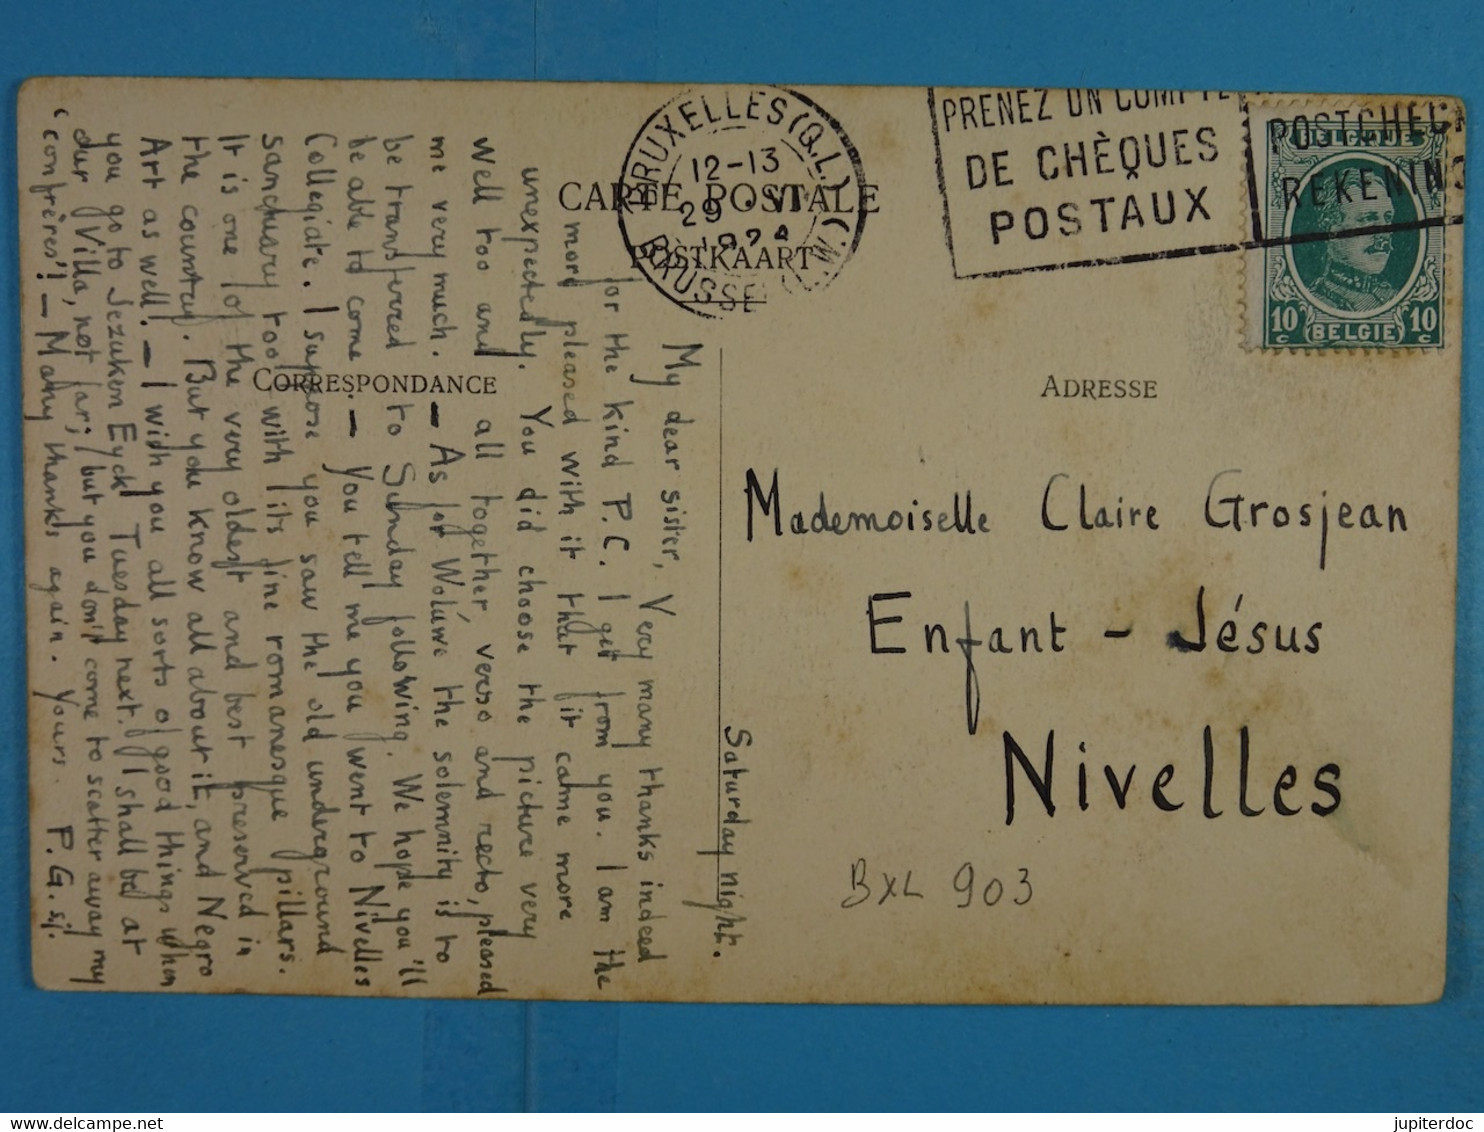 CARTE POSTALE
POSTKAART
BRUXELLES (Q.L.)
12-13
29 · VI
1924
PRENEZ UN COMPTE
DE CHÈQUES
POSTAUX
POSTCHECK
REKENING
10 c BELGIE 10 c
CORRESPONDANCE
ADRESSE
Saturday night.
My dear sister, Very many thanks indeed
for the kind P.C. I get from you. I am the
more pleased with it that it came more
unexpectedly. You did choose the picture very
well too and all together, verso and recto, pleased
me very much. — As for Woluwe the solemnity is to
be transferred to Sunday following. We hope you'll
be able to come. — You tell me you went to Nivelles
Collegiate. I suppose you saw the old underground
sanctuary too with its fine romanesque pillars.
It is one of the very oldest and best preserved in
the country. But you know all about it, and Negro
Art as well! — I wish you all sorts of good things when
you go to Jezuken Eyck Tuesday next. I shall be at
our Villa, not far; but you don't come to scatter away my
"confrères"! — Many thanks again. Yours. P. G. sj.
Mademoiselle Claire Grosjean
Enfant - Jésus
Nivelles
BXL 903
jupiterdoc